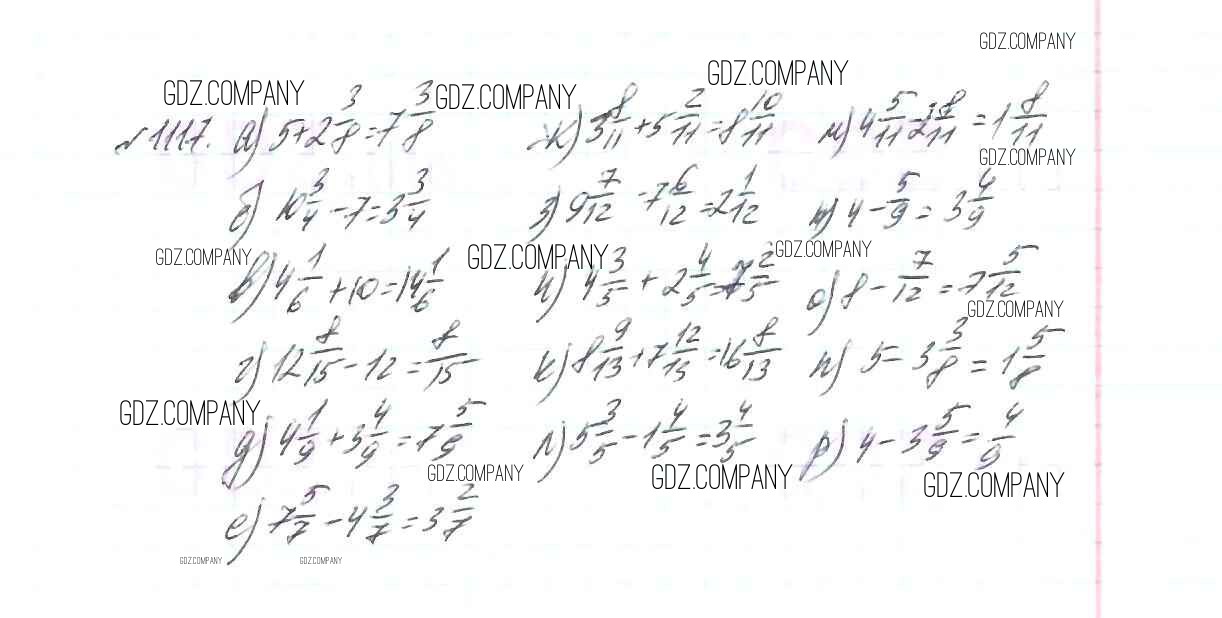 GDZ.COMPANY
GDZ.COMPANY GDZ.COMPANY GDZ.COMPANY
№1117. а) 5+2 3/8=7 3/8 ж) 3 8/11+5 2/11=8 10/11 м) 4 5/11-2 8/11=1 8/11
GDZ.COMPANY
б) 10 3/4-7=3 3/4 з) 9 7/12-7 6/12=2 1/12 н) 4-5/9=3 4/9
GDZ.COMPANY GDZ.COMPANY GDZ.COMPANY
в) 4 1/6+10=14 1/6 и) 4 3/5+2 4/5=7 2/5 о) 8-7/12=7 5/12
GDZ.COMPANY
г) 12 8/15-12=8/15 к) 8 9/13+7 12/13=16 8/13 п) 5-3 3/8=1 5/8
GDZ.COMPANY
д) 4 1/9+3 4/9=7 5/9 л) 5 3/5-1 4/5=3 4/5 р) 4-3 5/9=4/9
GDZ.COMPANY GDZ.COMPANY GDZ.COMPANY
е) 7 5/7-4 3/7=3 2/7
GDZ.COMPANY GDZ.COMPANY